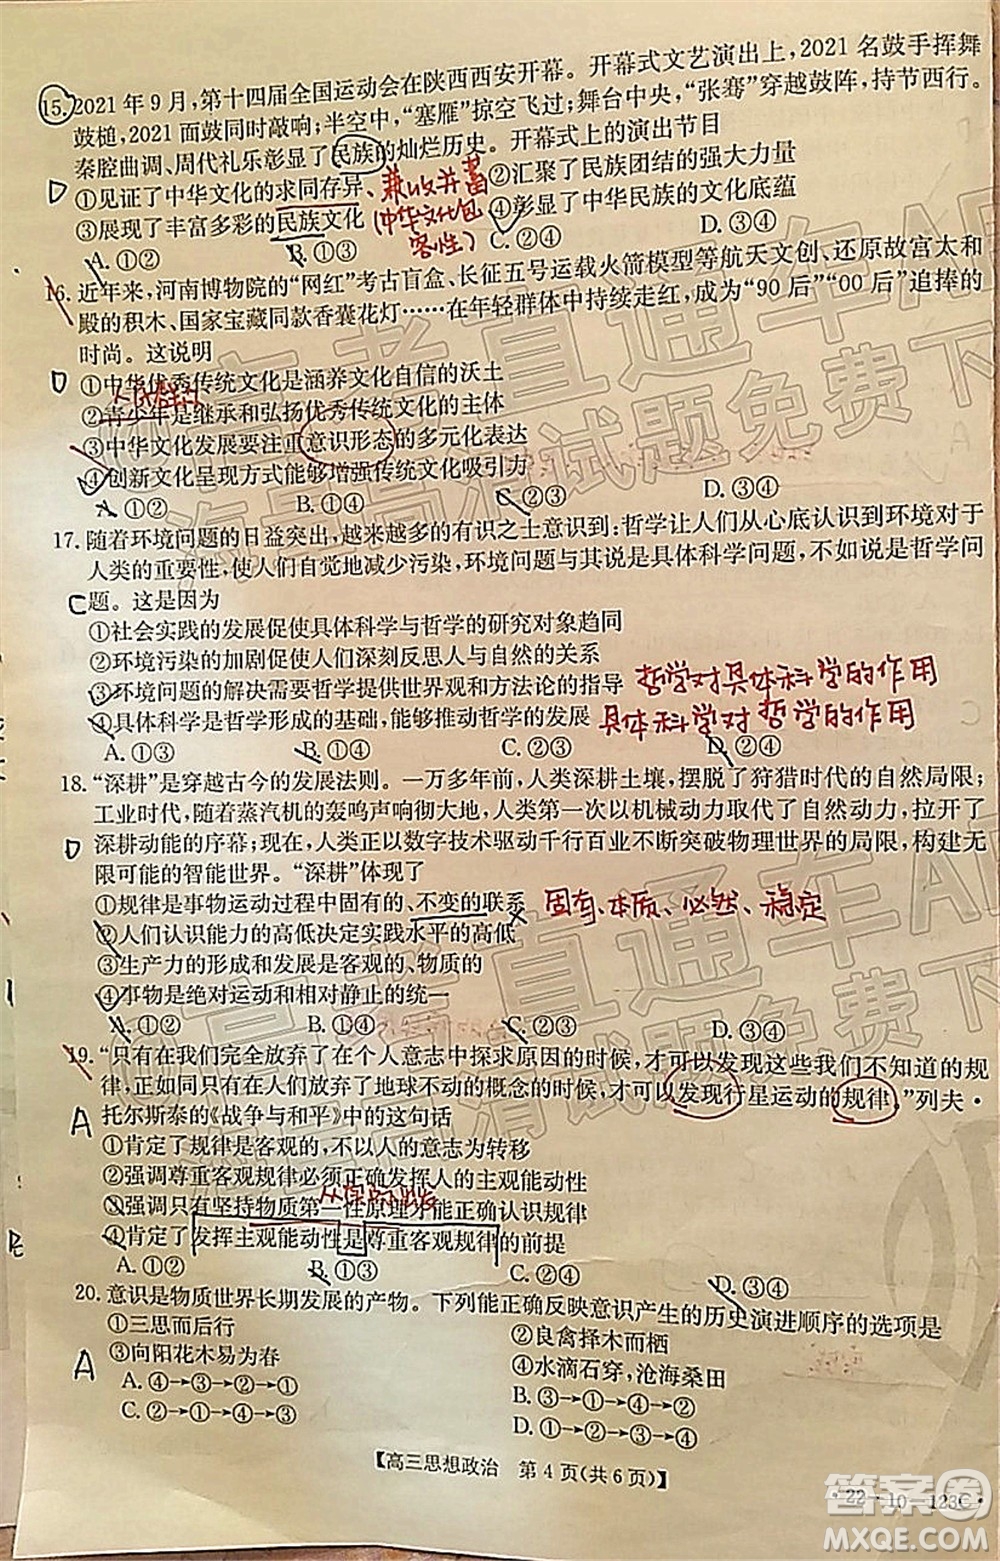 15.2021年9月,第十四届全国运动会在陕西西安开幕。开幕式文艺演出上,2021名鼓手挥舞
鼓槌,2021面鼓同时敲响;半空中,“塞雁”掠空飞过;舞台中央,“张骞”穿越鼓阵,持节西行。
秦腔曲调、周代礼乐彰显了民族的灿烂历史。开幕式上的演出节目
D
①见证了中华文化的求同存异、兼收并蓄
②汇聚了民族团结的强大力量
③展现了丰富多彩的民族文化
(中华文化包
容性)
④彰显了中华民族的文化底蕴
A.①② B.①③ C.②④ D.③④
16.近年来,河南博物院的“网红”考古盲盒、长征五号运载火箭模型等航天文创、还原故宫太和
殿的积木、国家宝藏同款香囊花灯……在年轻群体中持续走红,成为“90后”“00后”追捧的
时尚。这说明
D
①中华优秀传统文化是涵养文化自信的沃土
人民群众
②青少年是继承和弘扬优秀传统文化的主体
③中华文化发展要注重意识形态的多元化表达
④创新文化呈现方式能够增强传统文化吸引力
A.①② B.①④ C.②③ D.③④
17.随着环境问题的日益突出,越来越多的有识之士意识到:哲学让人们从心底认识到环境对于
人类的重要性,使人们自觉地减少污染,环境问题与其说是具体科学问题,不如说是哲学问
C题。这是因为
①社会实践的发展促使具体科学与哲学的研究对象趋同
②环境污染的加剧促使人们深刻反思人与自然的关系
③环境问题的解决需要哲学提供世界观和方法论的指导 哲学对具体科学的作用
④具体科学是哲学形成的基础,能够推动哲学的发展 具体科学对哲学的作用
A.①③ B.①④ C.②③ D.②④
18.“深耕”是穿越古今的发展法则。一万多年前,人类深耕土壤,摆脱了狩猎时代的自然局限;
工业时代,随着蒸汽机的轰鸣声响彻大地,人类第一次以机械动力取代了自然力,拉开了
D 深耕动能的序幕;现在,人类正以数字技术驱动千行百业不断突破物理世界的局限,构建无
限可能的智能世界。“深耕”体现了
①规律是事物运动过程中固有的、不变的联系 固有、本质、必然、稳定
②人们认识能力的高低决定实践水平的高低
③生产力的形成和发展是客观的、物质的
④事物是绝对运动和相对静止的统一
A.①② B.①④ C.②③ D.③④
19.“只有在我们完全放弃了在个人意志中探求原因的时候,才可以发现这些我们不知道的规
律,正如同只有在人们放弃了地球不动的概念的时候,才可以发现行星运动的规律。”列夫·
A 托尔斯泰的《战争与和平》中的这句话
①肯定了规律是客观的,不以人的意志为转移
②强调尊重客观规律必须正确发挥人的主观能动性
③强调只有坚持物质第一性原理才能正确认识规律
④肯定了发挥主观能动性是尊重客观规律的前提
A.①② B.①③ C.②④ D.③④
20.意识是物质世界长期发展的产物。下列能正确反映意识产生的历史演进顺序的选项是
①三思而后行 ②良禽择木而栖
A ③向阳花木易为春 ④水滴石穿,沧海桑田
A.④→③→②→① B.③→①→④→②
C.②→①→④→③ D.①→②→③→④
【高三思想政治 第4页(共6页)】
·22-10-123C·
答案圈
MXQE.COM